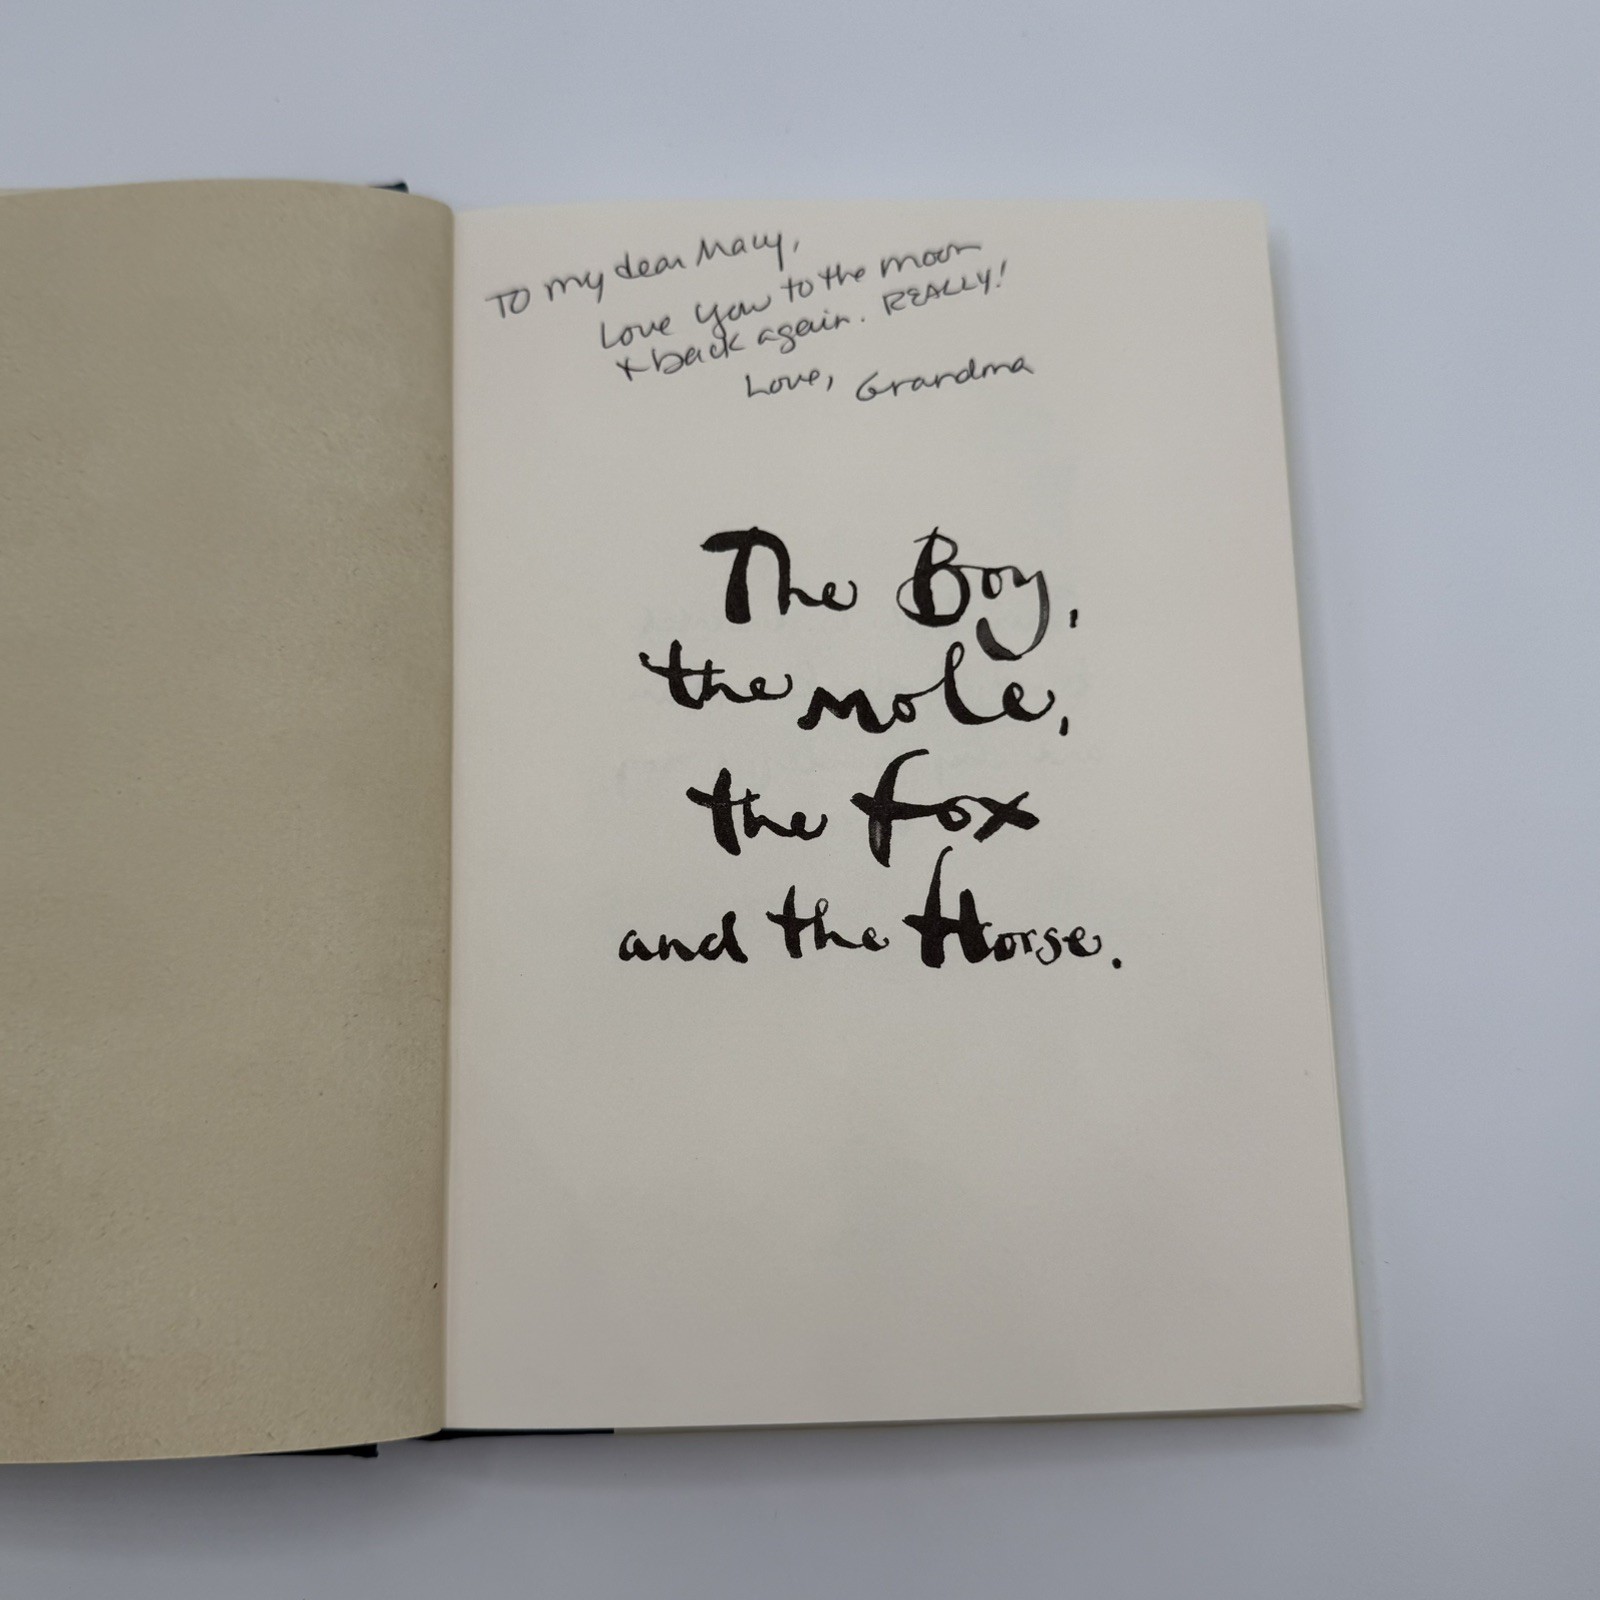 To my dear Macy,
Love you to the moon
+ back again. REALLY!
Love, Grandma
The Boy,
the mole,
the fox
and the Horse.